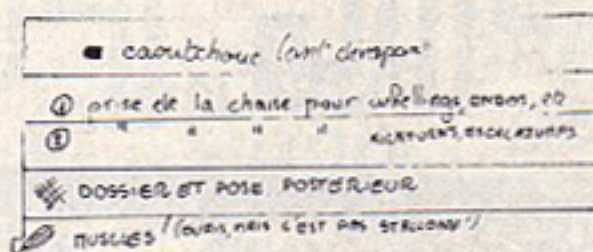 ■ caoutchouc (anti dérapant
① prise de la chaise pour wheelings, endos, 
② " " " "
KICKTURNS,
DOSSIER ET POSE POSTÉRIEUR
MUSCLES! (OUAIS, MAIS C'EST PAS STALLONE!)